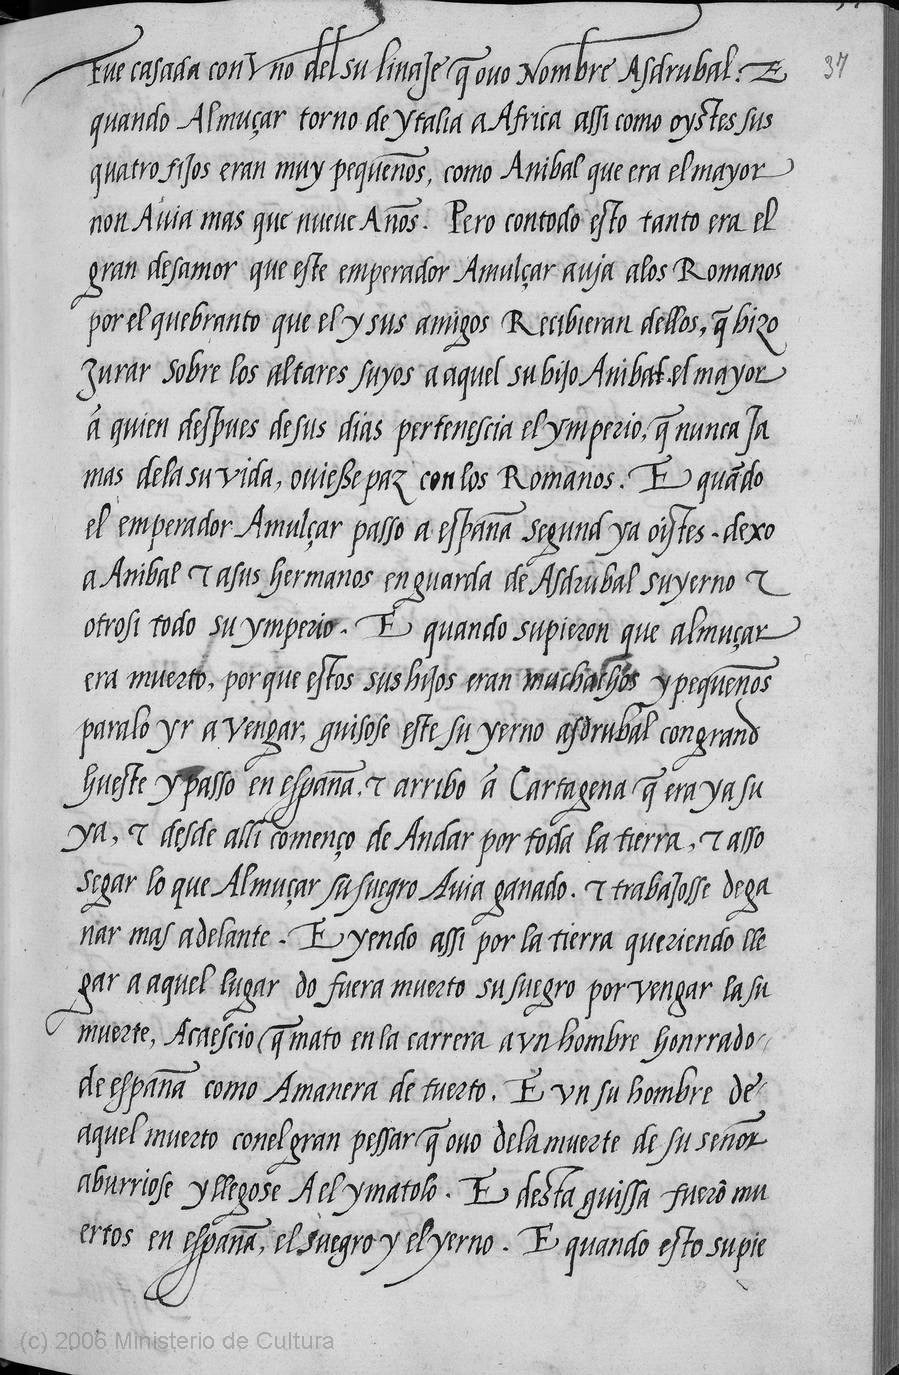 37
Fue casada con Vno del su linaJe q̃ ouo Nombre Asdrubal. E
quando Almuçar torno de ytalia a Africa assi como oystes sus
quatro fiJos eran muy pequeños, como Anibal que era el mayor
non Auia mas que nueue Años. Pero contodo esto tanto era el
gran desamor que este emperador Amulçar auja alos Romanos
por el quebranto que el y sus amigos Recibieran dellos, q̃ hizo
Jurar Sobre los altares suyos a aquel su hijo Anibal. el mayor
á quien despues de sus dias pertenescia el ymperio, q̃ nunca Ja
mas dela su vida, ouiesse paz con los Romanos. E quãdo
el emperador Amulçar passo a españa Segund ya oistes. dexo
a Anibal ⁊ a sus hermanos en guarda de Asdrubal su yerno ⁊
otrosi todo su ymperio. E quando supieron que almuçar
era muerto, por que estos sus hijos eran muchachos y pequeños
paralo yr a Vengar, guisose este su yerno asdrubal con grand
hueste y passo en españa, ⁊ arribo á Cartagena q̃ era ya su
ya, ⁊ desde alli començo de Andar por toda la tierra, ⁊ asso
Segar lo que Almuçar su suegro Auia ganado. ⁊ trabaJosse de ga
nar mas adelante. E yendo assi por la tierra queriendo lle
gar a aquel lugar do fuera muerto su suegro por vengar la su
muerte, Acaescio q̃ mato en la carrera a vn hombre honrrado
de españa como Amanera de tuerto. E vn su hombre de
aquel muerto conel gran pessar q̃ ouo dela muerte de su señor
aburriose y llegose A el y matolo. E desta guissa fuerõ mu
ertos en españa, el suegro y el yerno. E quando esto supie
(c) 2006 Ministerio de Cultura